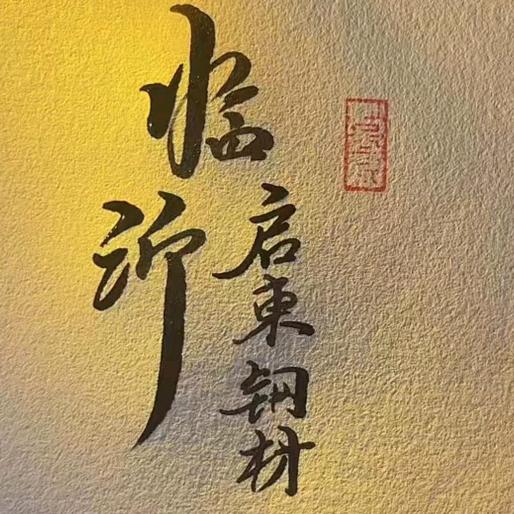 临沂
启東钢材